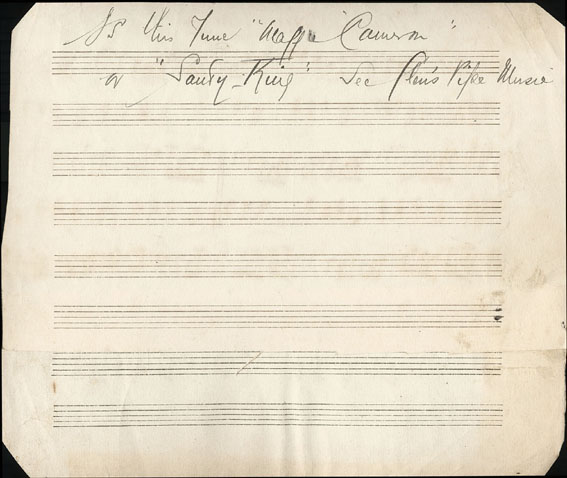 Is this Tune "Maggie Cameron"
or "Sandy King" See Glen's Pipe Music